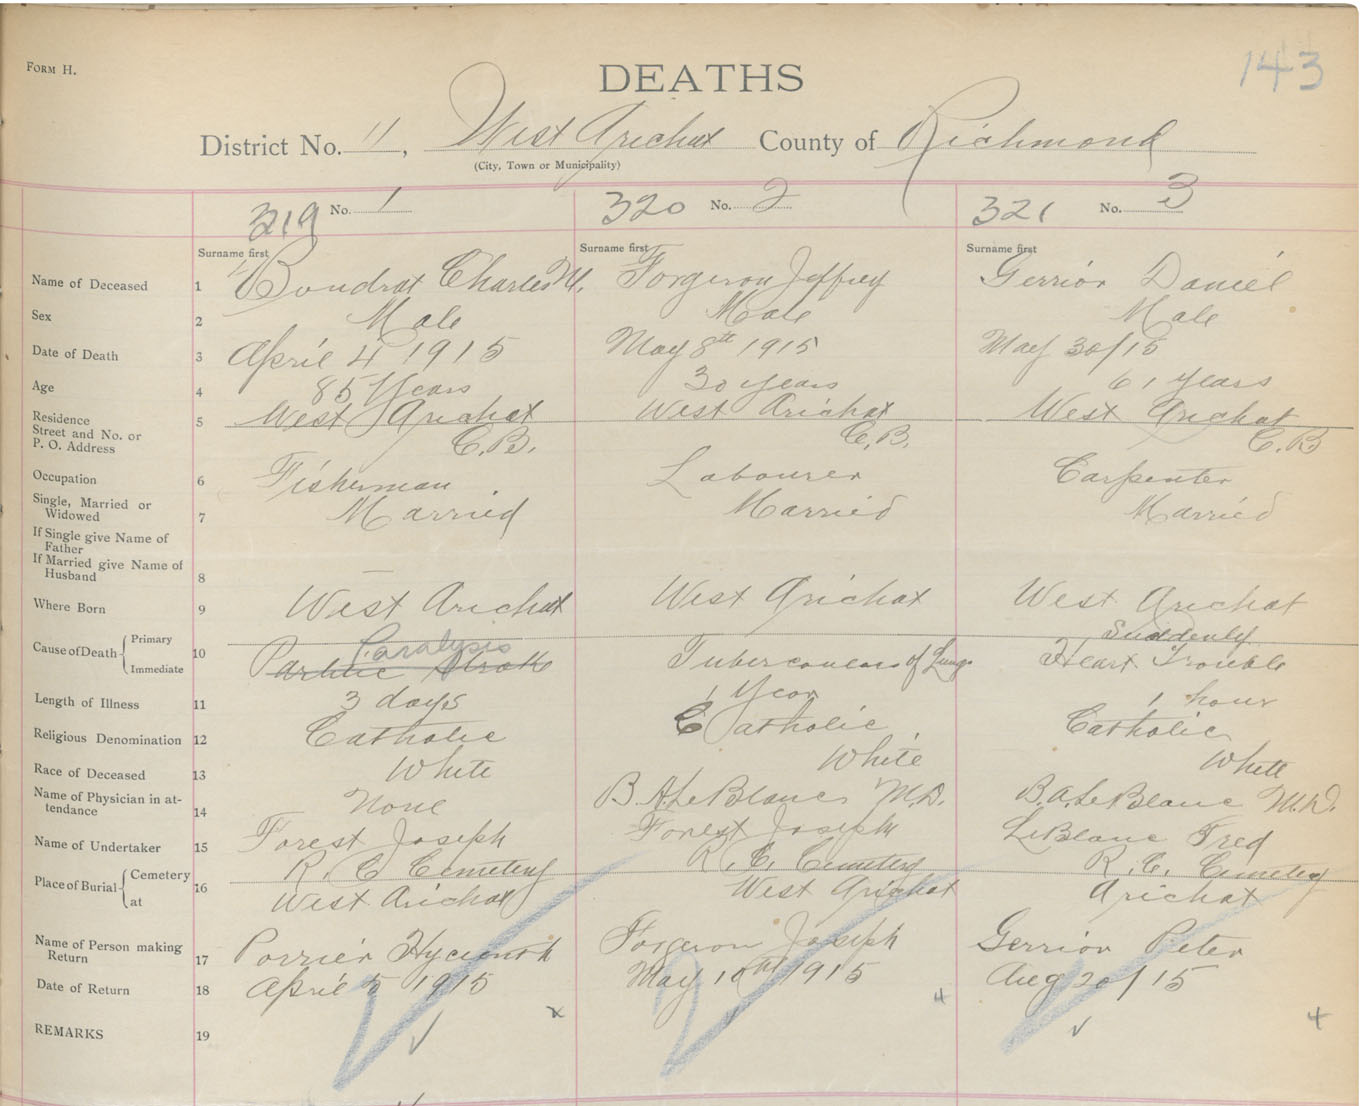 FORM H.
DEATHS
143
District No. 11, West Arichat County of Richmond
(City, Town or Municipality)
319 No. 1
320 No. 2
321 No. 3
Surname first
Surname first
Surname first
Name of Deceased 1 Boudrot Charles M. Forgeron Jeffrey Gerrior Daniel
Sex 2 Male Male Male
Date of Death 3 April 4 1915 May 8th 1915 May 30/15
Age 4 85 Years 30 years 61 years
Residence
Street and No. or
P. O. Address 5 West Arichat West Arichat West Arichat
C.B. C.B. C.B
Occupation 6 Fisherman Labourer Carpenter
Single, Married or
Widowed 7 Married Married Married
If Single give Name of
Father
If Married give Name of
Husband 8 —
Where Born 9 West Arichat West Arichat West Arichat
Cause of Death { Primary Paralysis Suddenly
Immediate 10 Stroke Tuberculosis of Lungs Heart Trouble
Length of Illness 11 3 days 1 Year 1 hour
Religious Denomination 12 Catholic Catholic Catholic
Race of Deceased 13 White White White
Name of Physician in at-
tendance 14 None B. A. LeBlanc M.D. B. A. LeBlanc M.D.
Name of Undertaker 15 Forest Joseph Forest Joseph LeBlanc Fred
Place of Burial { Cemetery R. C Cemetery R. C. Cemetery R. C. Cemetery
at 16 West Arichat West Arichat Arichat
Name of Person making
Return 17 Porrier Forgeron Joseph Gerrior Peter
Date of Return 18 April 5 1915 May 10th 1915 Aug 20/15
REMARKS 19